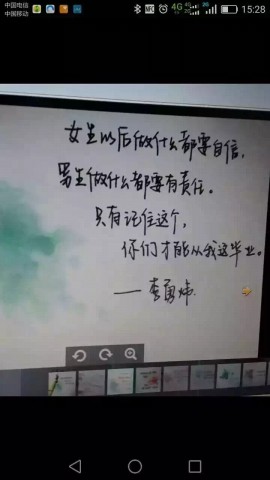 中国电信
中国移动
4G
15:28
女生以后做什么都要自信,
男生做什么都要有责任。
只有记住这个,
你们才能从我这毕业。
——李勇炜